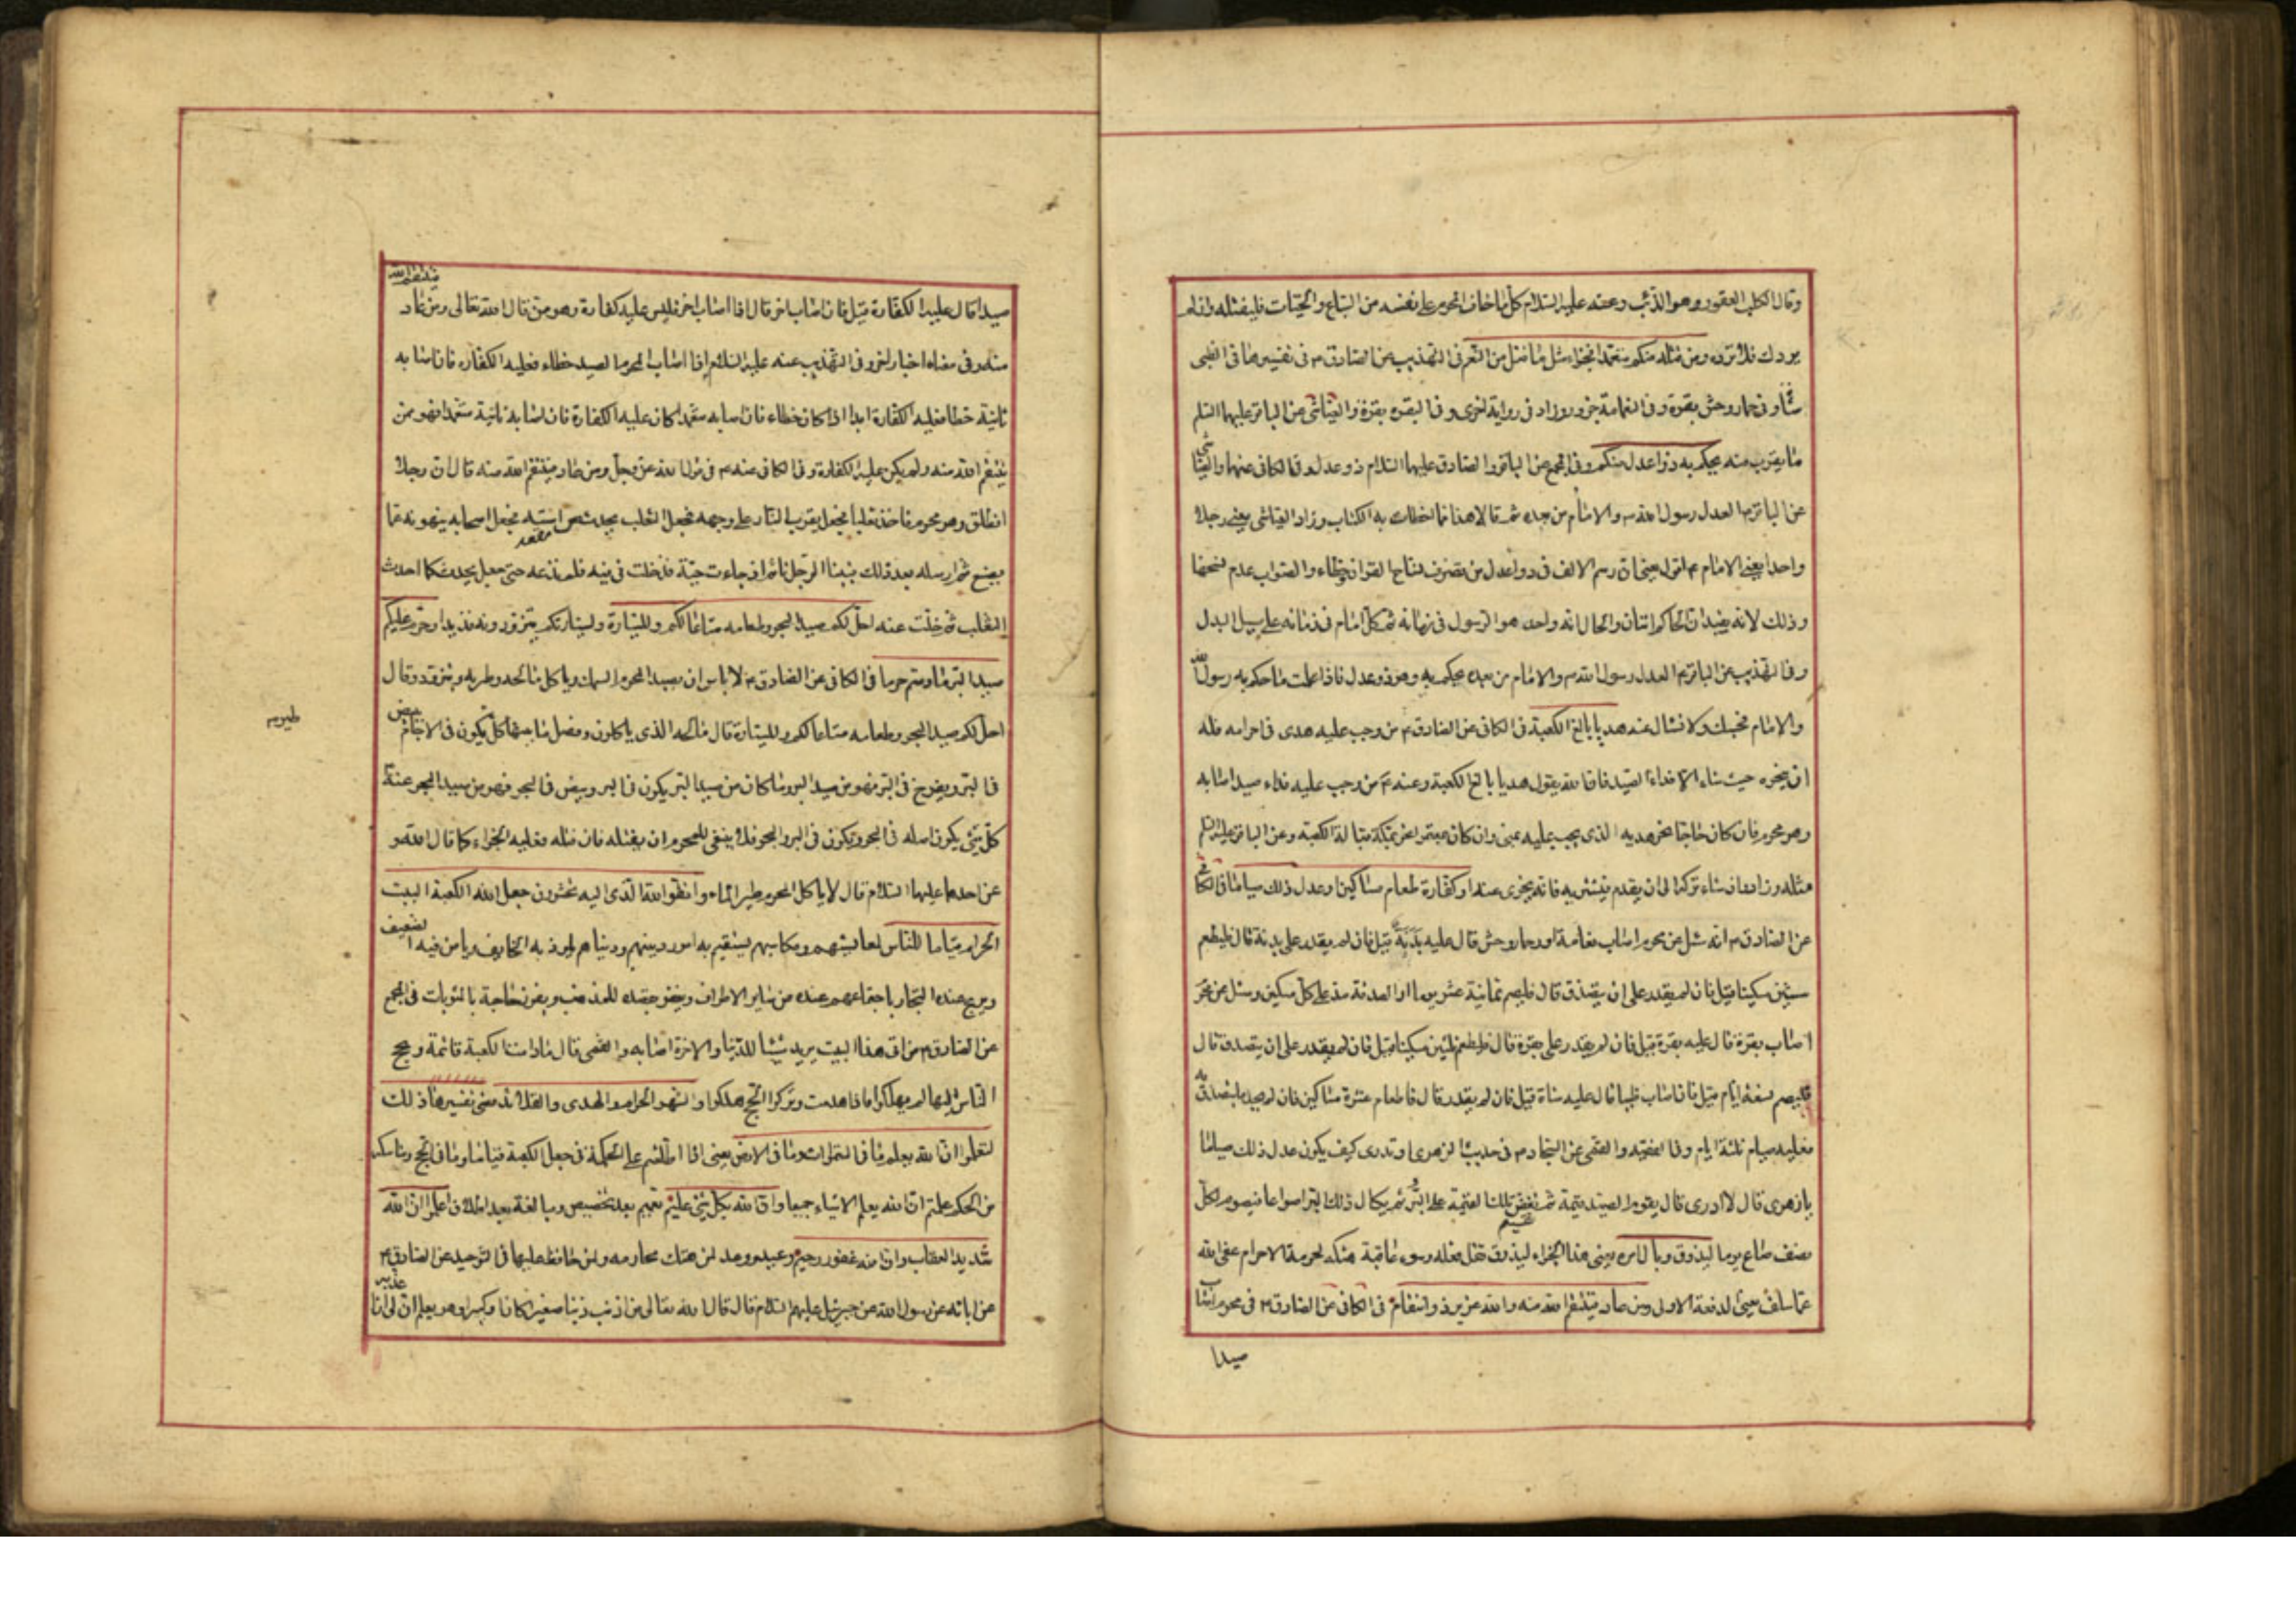 وقال الكلب العقور وهو الذئب وعنه عليه السلام كل ما خاف المحرم على نفسه من السباع والحيات فليقتله وان لم
يردك فلا ترده ومن قتله منكم متعمدا فجزاء مثل ما قتل من النعم في التهذيب عن الصادق ع في تفسيرها في الظبي
شاة وفي حمار وحش بقرة وفي النعامة جزور وزاد في رواية اخرى وفي البقرة بقرة والعياشي عن الباقر عليهما السلم
ما يقرب منه يحكم به ذوا عدل منكم وفي المجمع عن الباقر والصادق عليهما السلام ذو عدل وفي الكافي عنهما والعياشي
عن الباقر ع العدل رسول الله ص والامام من بعده ثم قالا هذا مما اخطات به الكتاب وزاد العياشي يعني رجلا
واحدا يعني الامام ع اقول يعني ان رسم الالف في ذوا عدل من تصرف نساخ القران خطاء والصواب عدم نسخها
وذلك لانه يفيد ان الحاكم اثنان والحال انه واحد هو الرسول في زمانه ثم كل امام في زمانه على سبيل البدل
وفي التهذيب عن الباقر ع العدل رسول الله ص والامام من بعده يحكم به وهو ذو عدل فاذا علمت ما حكم به رسول الله
والامام فحسبك ولا تسال عنه هديا بالغ الكعبة في الكافي عن الصادق ع من وجب عليه هدي في احرامه فله
ان ينحره حيث شاء الا فداء الصيد فان الله يقول هديا بالغ الكعبة وعنه ع من وجب عليه فداء صيد اصابه
وهو محرم فان كان حاجا نحر هديه الذي يجب عليه بمنى وان كان معتمرا نحر بمكة قبالة الكعبة وعن الباقر عليه السلم
مثله وزاد وان شاء تركه الى ان يقدم فيشتريه فانه يجزي عنه او كفارة طعام مساكين او عدل ذلك صياما في الكافي
عن الصادق ع انه سئل عن محرم اصاب نعامة او حمار وحش قال عليه بدنة قيل فان لم يقدر على بدنة قال فليطعم
ستين مسكينا قيل فان لم يقدر على ان يتصدق قال فليصم ثمانية عشر يوما والصدقة مد على كل مسكين وسئل عن محرم
اصاب بقرة قال عليه بقرة قيل فان لم يقدر على بقرة قال فليطعم ثلثين مسكينا قيل فان لم يقدر على ان يتصدق قال
فليصم تسعة ايام قيل فان اصاب ظبيا قال عليه شاة قيل فان لم يقدر قال فاطعام عشرة مساكين فان لم يجد ما يتصدق به
فعليه صيام ثلثة ايام وفي الفقيه والقمي عن السجاد ع في حديث الزهري او تدري كيف يكون عدل ذلك صياما
يا زهري قال لا ادري قال يقوم الصيد قيمة ثم تفض تلك القيمة على البر ثم يكال ذلك البر اصواعا فيصوم لكل
نصف صاع يوما ليذوق وبال امره يعني هذا الجزاء ليذوق ثقل فعله وسوء عاقبة هتكه لحرمة الاحرام عفى الله
عما سلف يعني الدفعة الاولى ومن عاد فينتقم الله منه والله عزيز ذو انتقام في الكافي عن الصادق ع في محرم اصاب
صيدا
صيدا قال عليه الكفارة قيل فان اصاب اخر قال اذا اصاب اخر فليس عليه كفارة وهو ممن قال الله تعالى ومن عاد فينتقم الله
منه وفي معناه اخبار اخر وفي التهذيب عنه عليه السلام اذا اصاب المحرم الصيد خطاء فعليه الكفارة فان اصابه
ثانية خطا فعليه الكفارة ابدا اذا كان خطاء فان اصابه متعمدا كان عليه الكفارة فان اصابه ثانية متعمدا فهو ممن
ينتقم الله منه ولم يكن عليه الكفارة وفي الكافي عنه ع في قول الله عز وجل ومن عاد فينتقم الله منه قال ان رجلا
انطلق وهو محرم فاخذ ثعلبا فجعل يقرب النار على وجهه فجعل الثعلب يحدث من استه فجعل اصحابه ينهونه عما
يصنع ثم ارسله بعد ذلك فبينا الرجل نائم اذ جاءت حية فدخلت في فيه فلم تدعه حتى جعل يحدث كما احدث
الثعلب ثم خلت عنه احل لكم صيد البحر وطعامه متاعا لكم وللسيارة ولسيارتكم يتزودونه قديدا وحرم عليكم
صيد البر ما دمتم حرما في الكافي عن الصادق ع لا باس ان يصيد المحرم السمك وياكل مالحه وطريه ويتزود وقال
احل لكم صيد البحر وطعامه متاعا لكم وللسيارة قال مالحه الذي ياكلون وفصل ما بينهما كل طير يكون في الاجام يبيض
في البر ويفرخ في البر فهو من صيد البر وما كان من صيد البر يكون في البر ويبيض في البحر فهو من صيد البحر وعنه ع
كل شيء يكون اصله في البحر ويكون في البر والبحر فلا ينبغي للمحرم ان يقتله فان قتله فعليه الجزاء كما قال الله و
عن احدهما عليهما السلام قال لا ياكل المحرم طير الماء واتقوا الله الذي اليه تحشرون جعل الله الكعبة البيت
الحرام قياما للناس لمعايشهم ومكاسبهم يستقيم به امور دينهم ودنياهم يلوذ به الخايف ويامن فيه الضعيف
ويربح عنده التجار باجتماعهم عنده من ساير الاطراف ويغفر بقصده للمذنب ويفوز حاجه بالمثوبات في المجمع
عن الصادق ع من اتى هذا البيت يريد شيئا للدنيا والاخرة اصابه والقمي قال ما دامت الكعبة قائمة ويحج
الناس اليها لم يهلكوا فاذا هدمت وتركوا الحج هلكوا والشهر الحرام والهدي والقلائد مضى تفسيرها ذلك
لتعلموا ان الله يعلم ما في السموات وما في الارض يعني اذا اطلعتم على الحكمة في جعل الكعبة قياما وما في الحج ومناسكه
من الحكم علمتم ان الله يعلم الاشياء جميعا وان الله بكل شيء عليم تعميم بعد تخصيص ومبالغة بعد اطلاق اعلموا ان الله
شديد العقاب وان الله غفور رحيم وعيد ووعد لمن هتك محارمه ولمن حافظ عليها في التوحيد عن الصادق ع
عن ابائه عن رسول الله عن جبرئيل عليهم السلام قال قال الله تعالى من اذنب ذنبا صغيرا كان او كبيرا وهو يعلم ان لي ان اعذبه